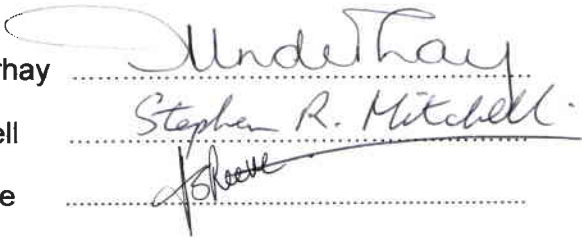 rhay Underhay
ell Stephen R. Mitchell.
e